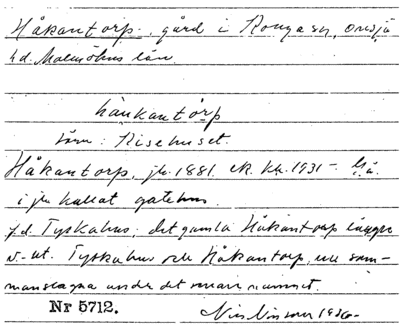 Håkantorp, gård i Konga sn, Onsjö
hd. Malmöhus län
håukantårp
Risehuset.
Håkantorp, jb. 1881. ek. kb. 1931 -
i jb kallat gatehus
f.d. Tyskahus, det gamla Håkantorp längre
v. ut. Tyskahus och Håkantorp, nu sam-
manslagna under det senare namnet.
Nr 5712.
Nils Nilsson 1936